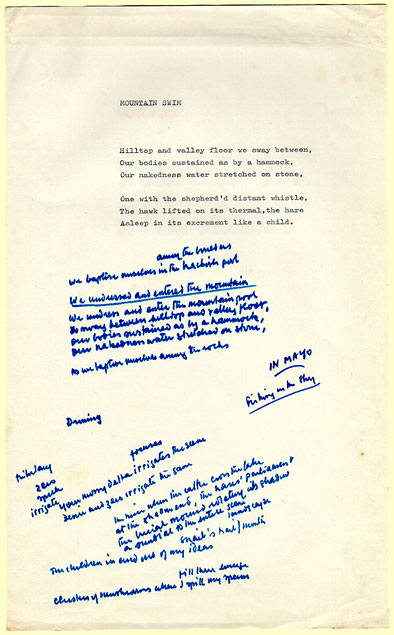 MOUNTAIN SWIM
Hilltop and valley floor we sway between,
Our bodies sustained as by a hammock,
Our nakedness water stretched on stone,
One with the shepherd'd distant whistle,
The hawk lifted on its thermal,the hare
Asleep in its excrement like a child.
among the boulders
We baptise ourselves in the pool
We undressed and entered the mountain
We undress and enter the mountain pool
To sway between hilltop and valley floor,
Our bodies sustained as by a hammock,
Our nakedness water stretched on stone,
As we baptise ourselves among the rocks
IN MAYO
Fishing in the Sky
Duming
focuses
tributary
zero
irrigate
your mossy Delta irrigates the scene
zero irrigate the scene
when the cattle cross the lake
at the end, the hares' Parliament
The burial mound rotating its shadow
a sundial to the entire
landscape
Snail's trail / mouth
The children in and out of my ideas
till there emerge
clusters of mushrooms where I spill my sperm